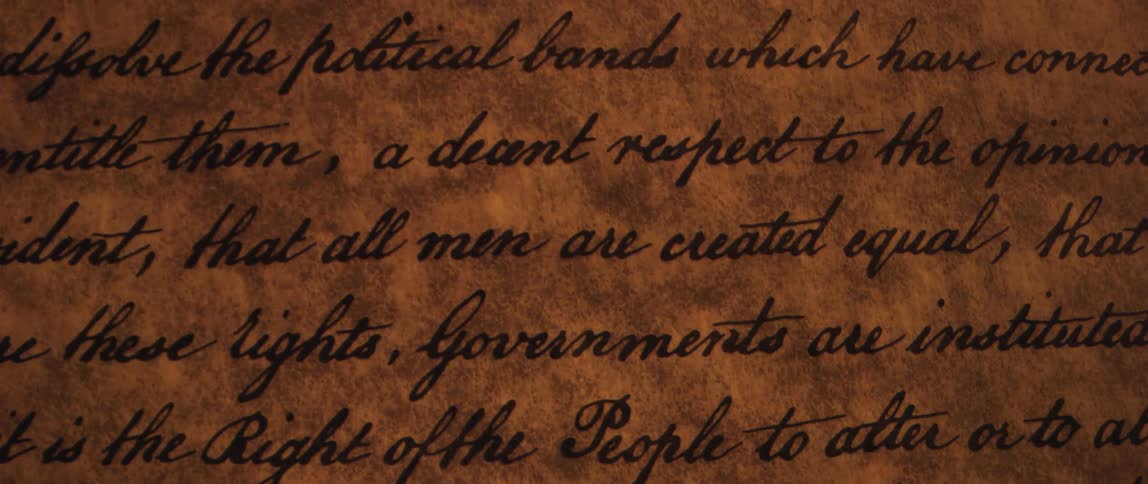 dissolve the political bands which have connec
entitle them, a decent respect to the opinion
ident, that all men are created equal, that
re these rights, Governments are instituted
it is the Right of the People to alter or to a